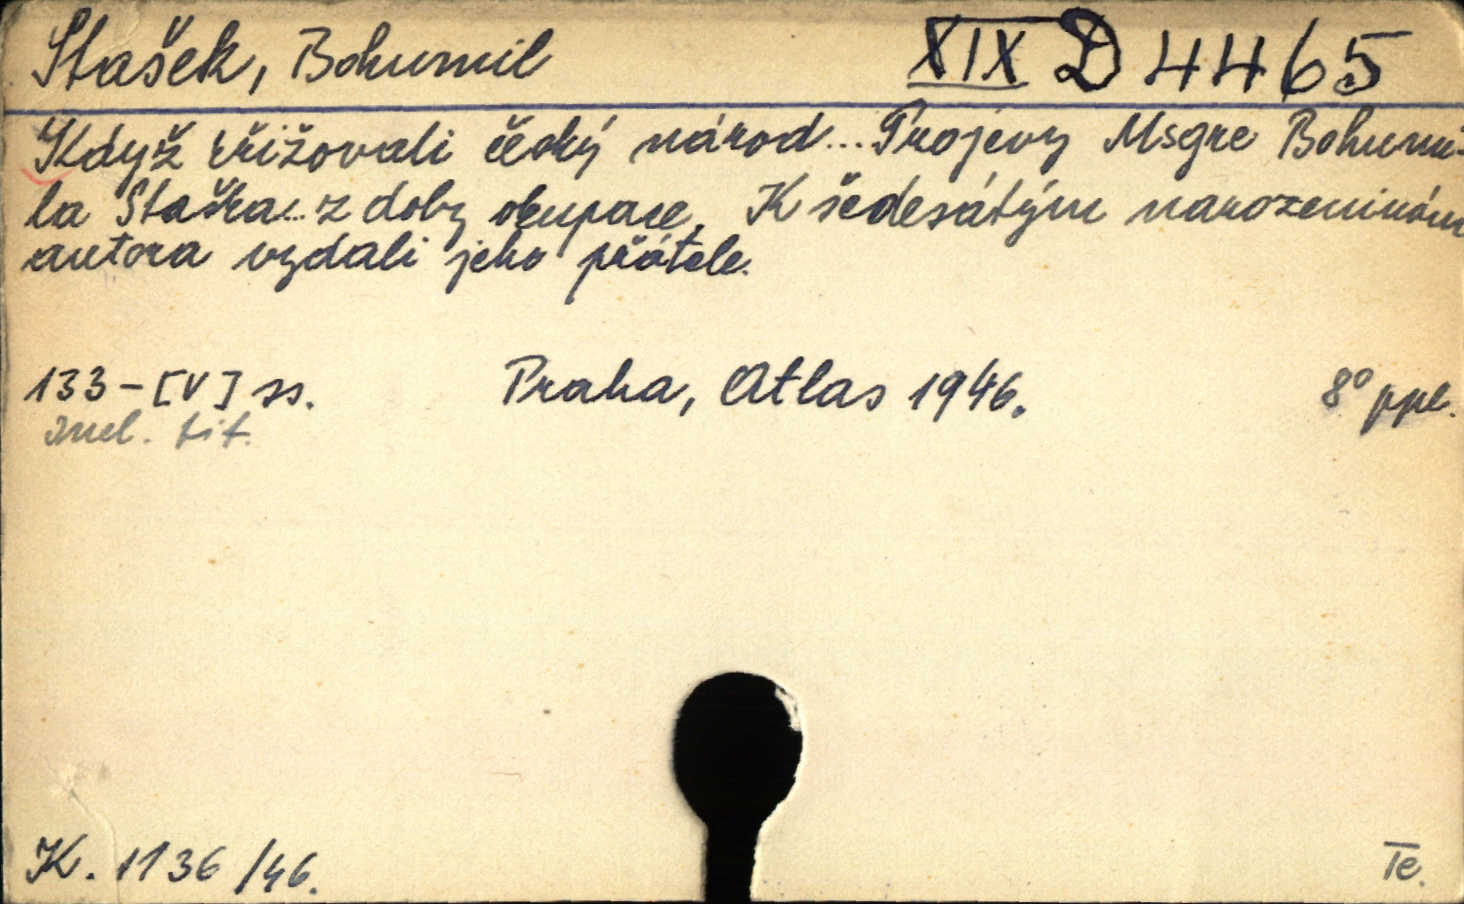 Stašek, Bohumil XIX D 4465
Když křižovali český národ... Projevy Msgre Bohumi-
la Staška... z doby okupace. K šedesátým narozeninám
autora vydali jeho přátele.
133-[V] ss. Praha, Atlas 1946. 8° ppl.
Incl. tit.
K. 1136/46. Te.